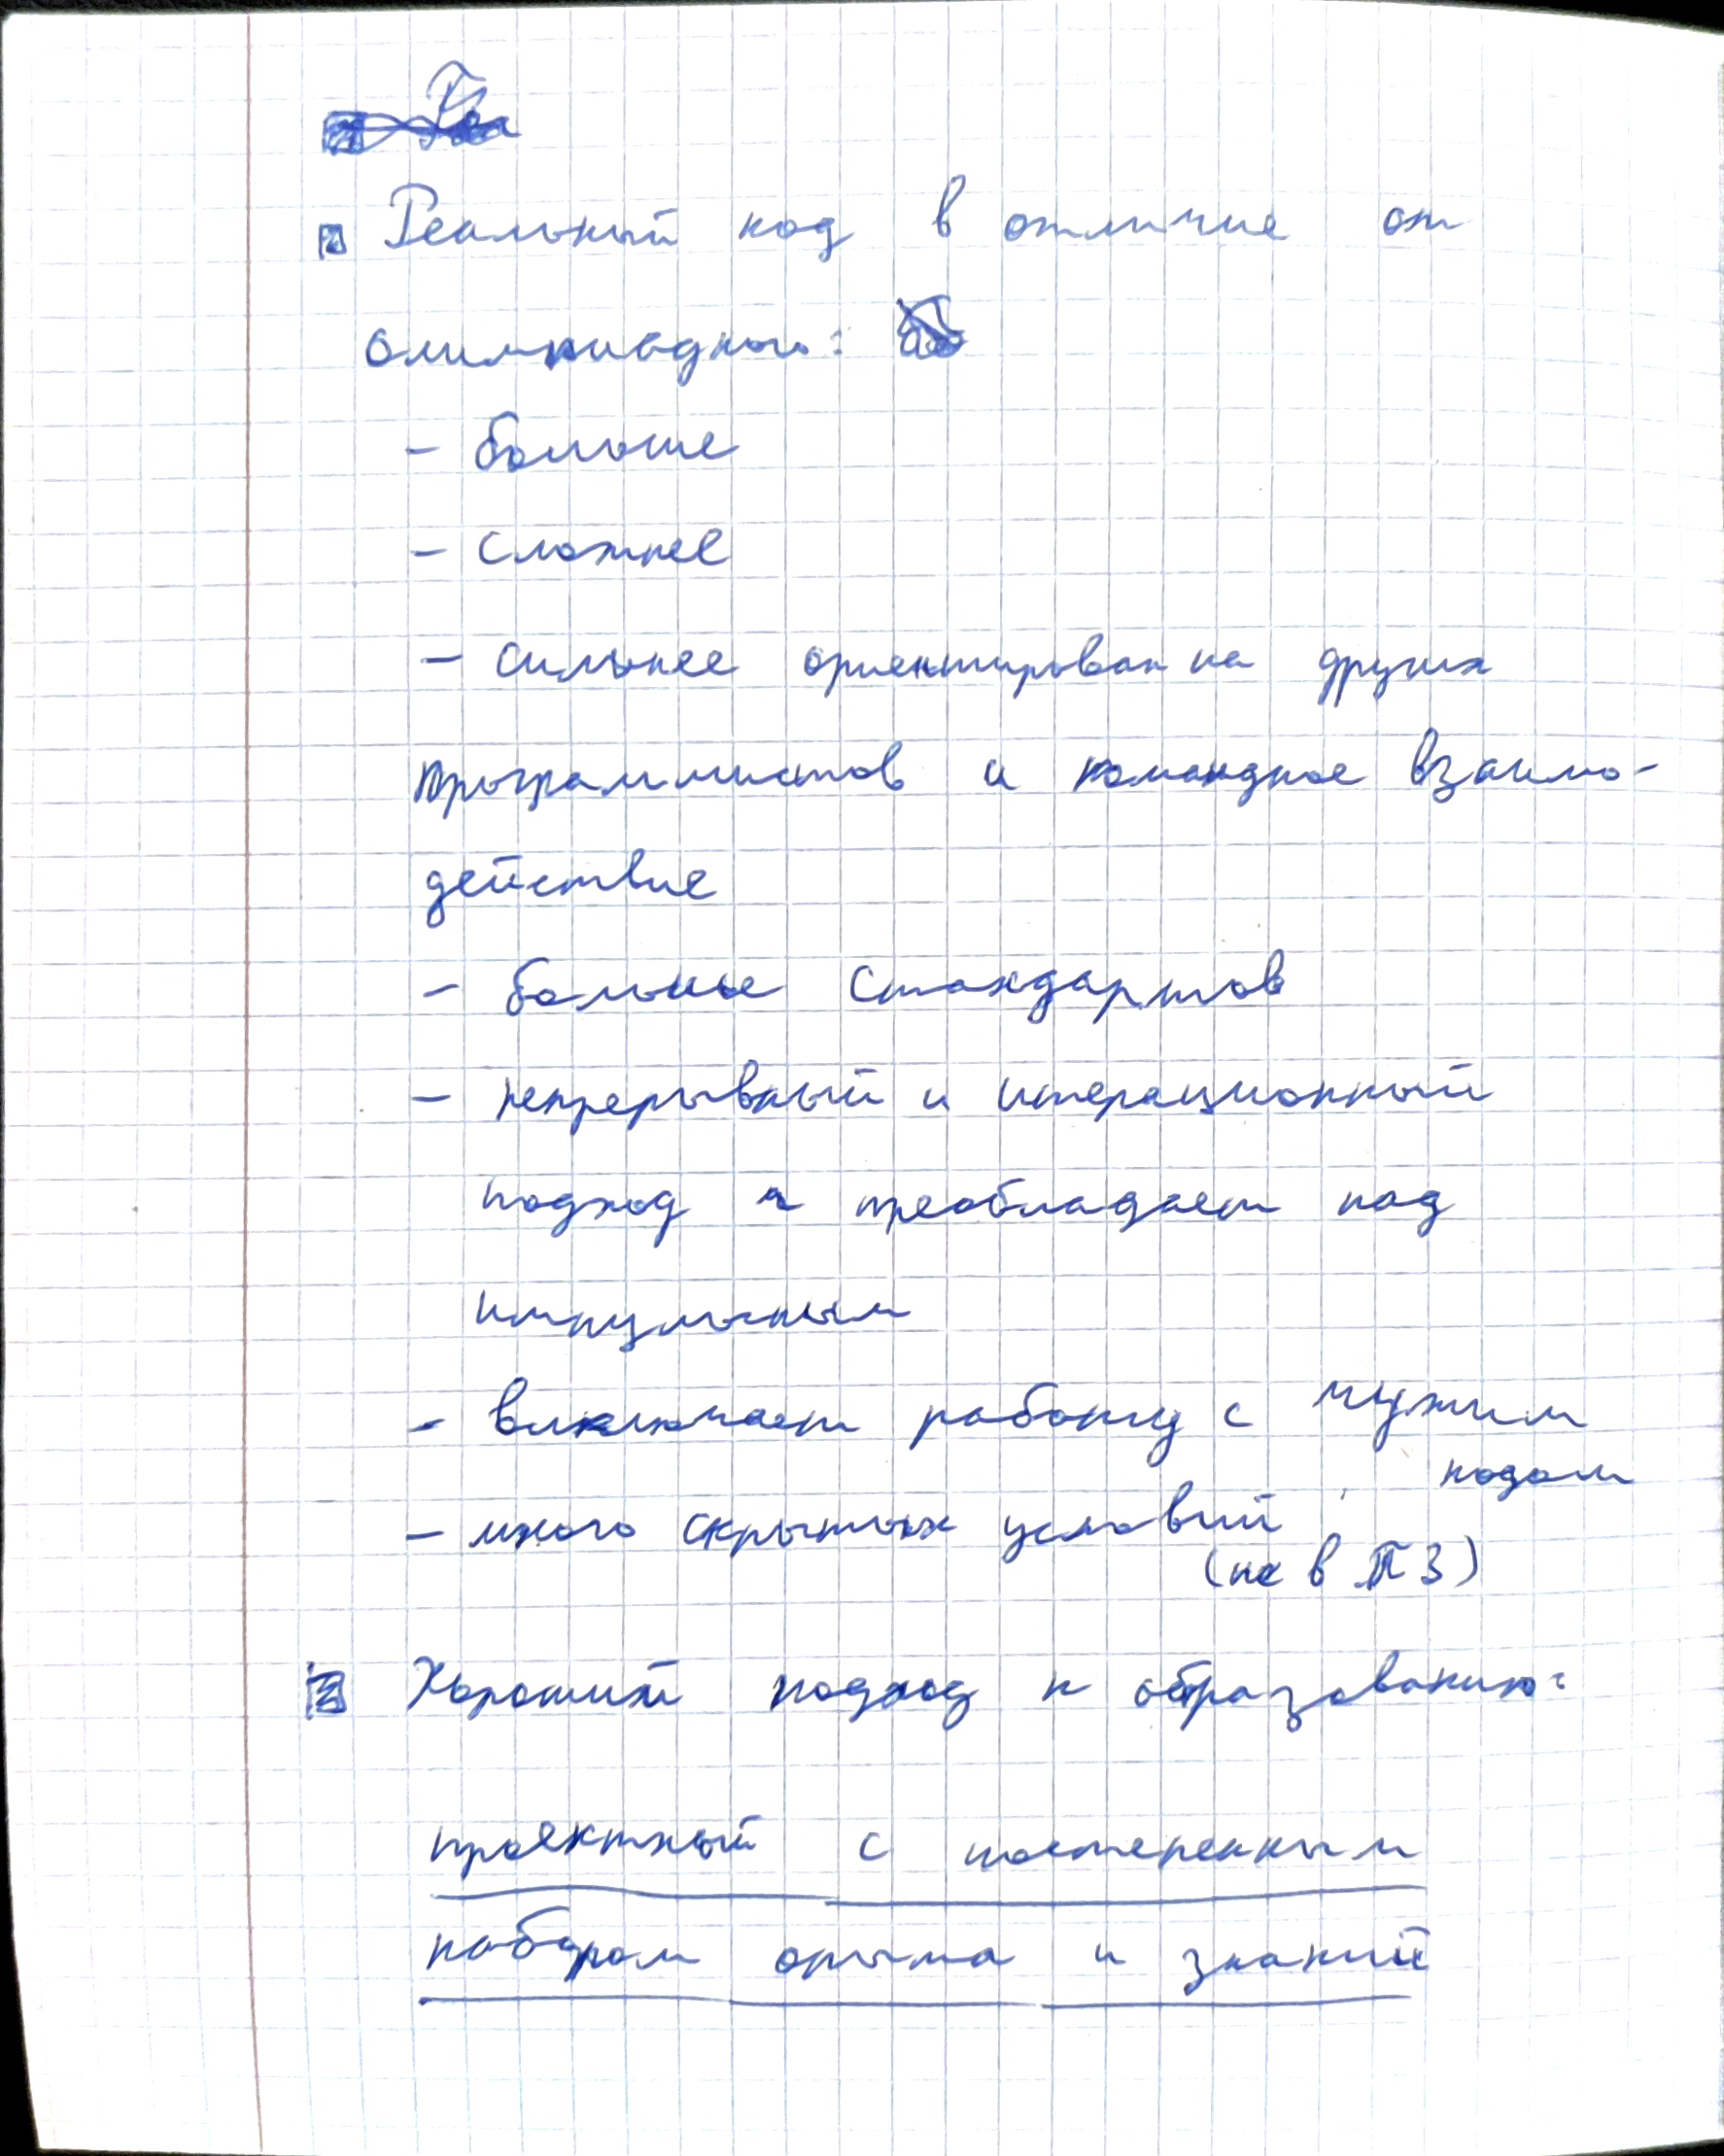 Реальный код в отличие от
олимпиадного:
- больше
- сложнее
- сильнее ориентирован на других
программистов и командное взаимо-
действие
- больше стандартов
- непрерывный и итерационный
подход преобладает над
импульсным
- включает работу с чужим
кодом
- много скрытых условий
(не в ТЗ)
Хороший подход к образованию:
проектный с постепенным
набором опыта и знаний